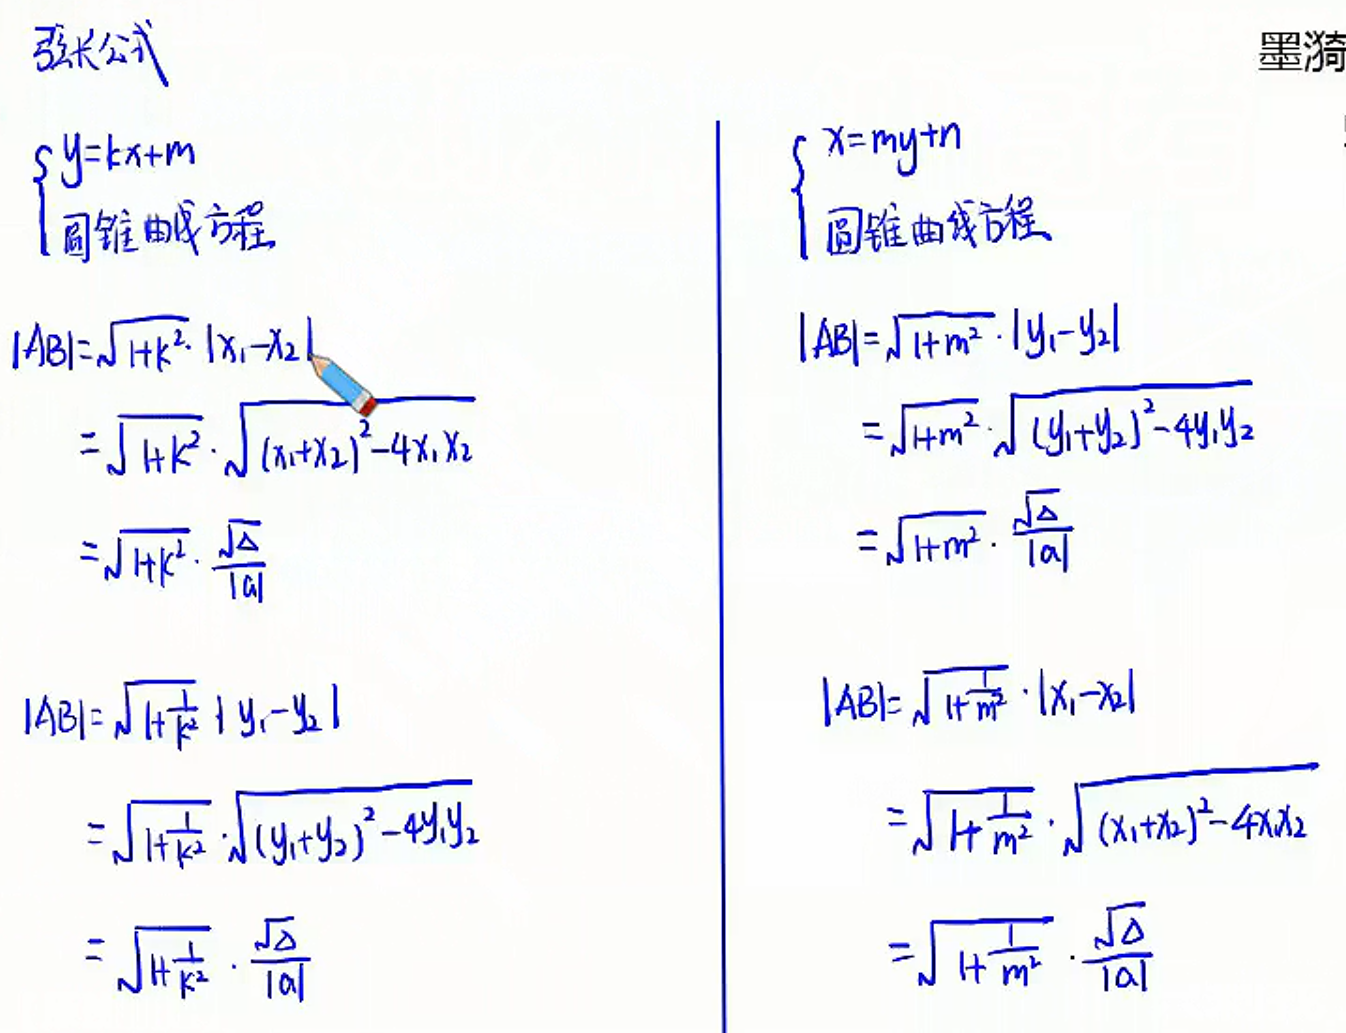 弦长公式
墨漪
y=kx+m
圆锥曲线方程
|AB|=√(1+k²)·|x₁-x₂|
=√(1+k²)·√((x₁+x₂)²-4x₁x₂)
=√(1+k²)·√Δ/|a|
|AB|=√(1+1/k²)·|y₁-y₂|
=√(1+1/k²)·√((y₁+y₂)²-4y₁y₂)
=√(1+1/k²)·√Δ/|a|
x=my+n
圆锥曲线方程
|AB|=√(1+m²)·|y₁-y₂|
=√(1+m²)·√((y₁+y₂)²-4y₁y₂)
=√(1+m²)·√Δ/|a|
|AB|=√(1+1/m²)·|x₁-x₂|
=√(1+1/m²)·√((x₁+x₂)²-4x₁x₂)
=√(1+1/m²)·√Δ/|a|